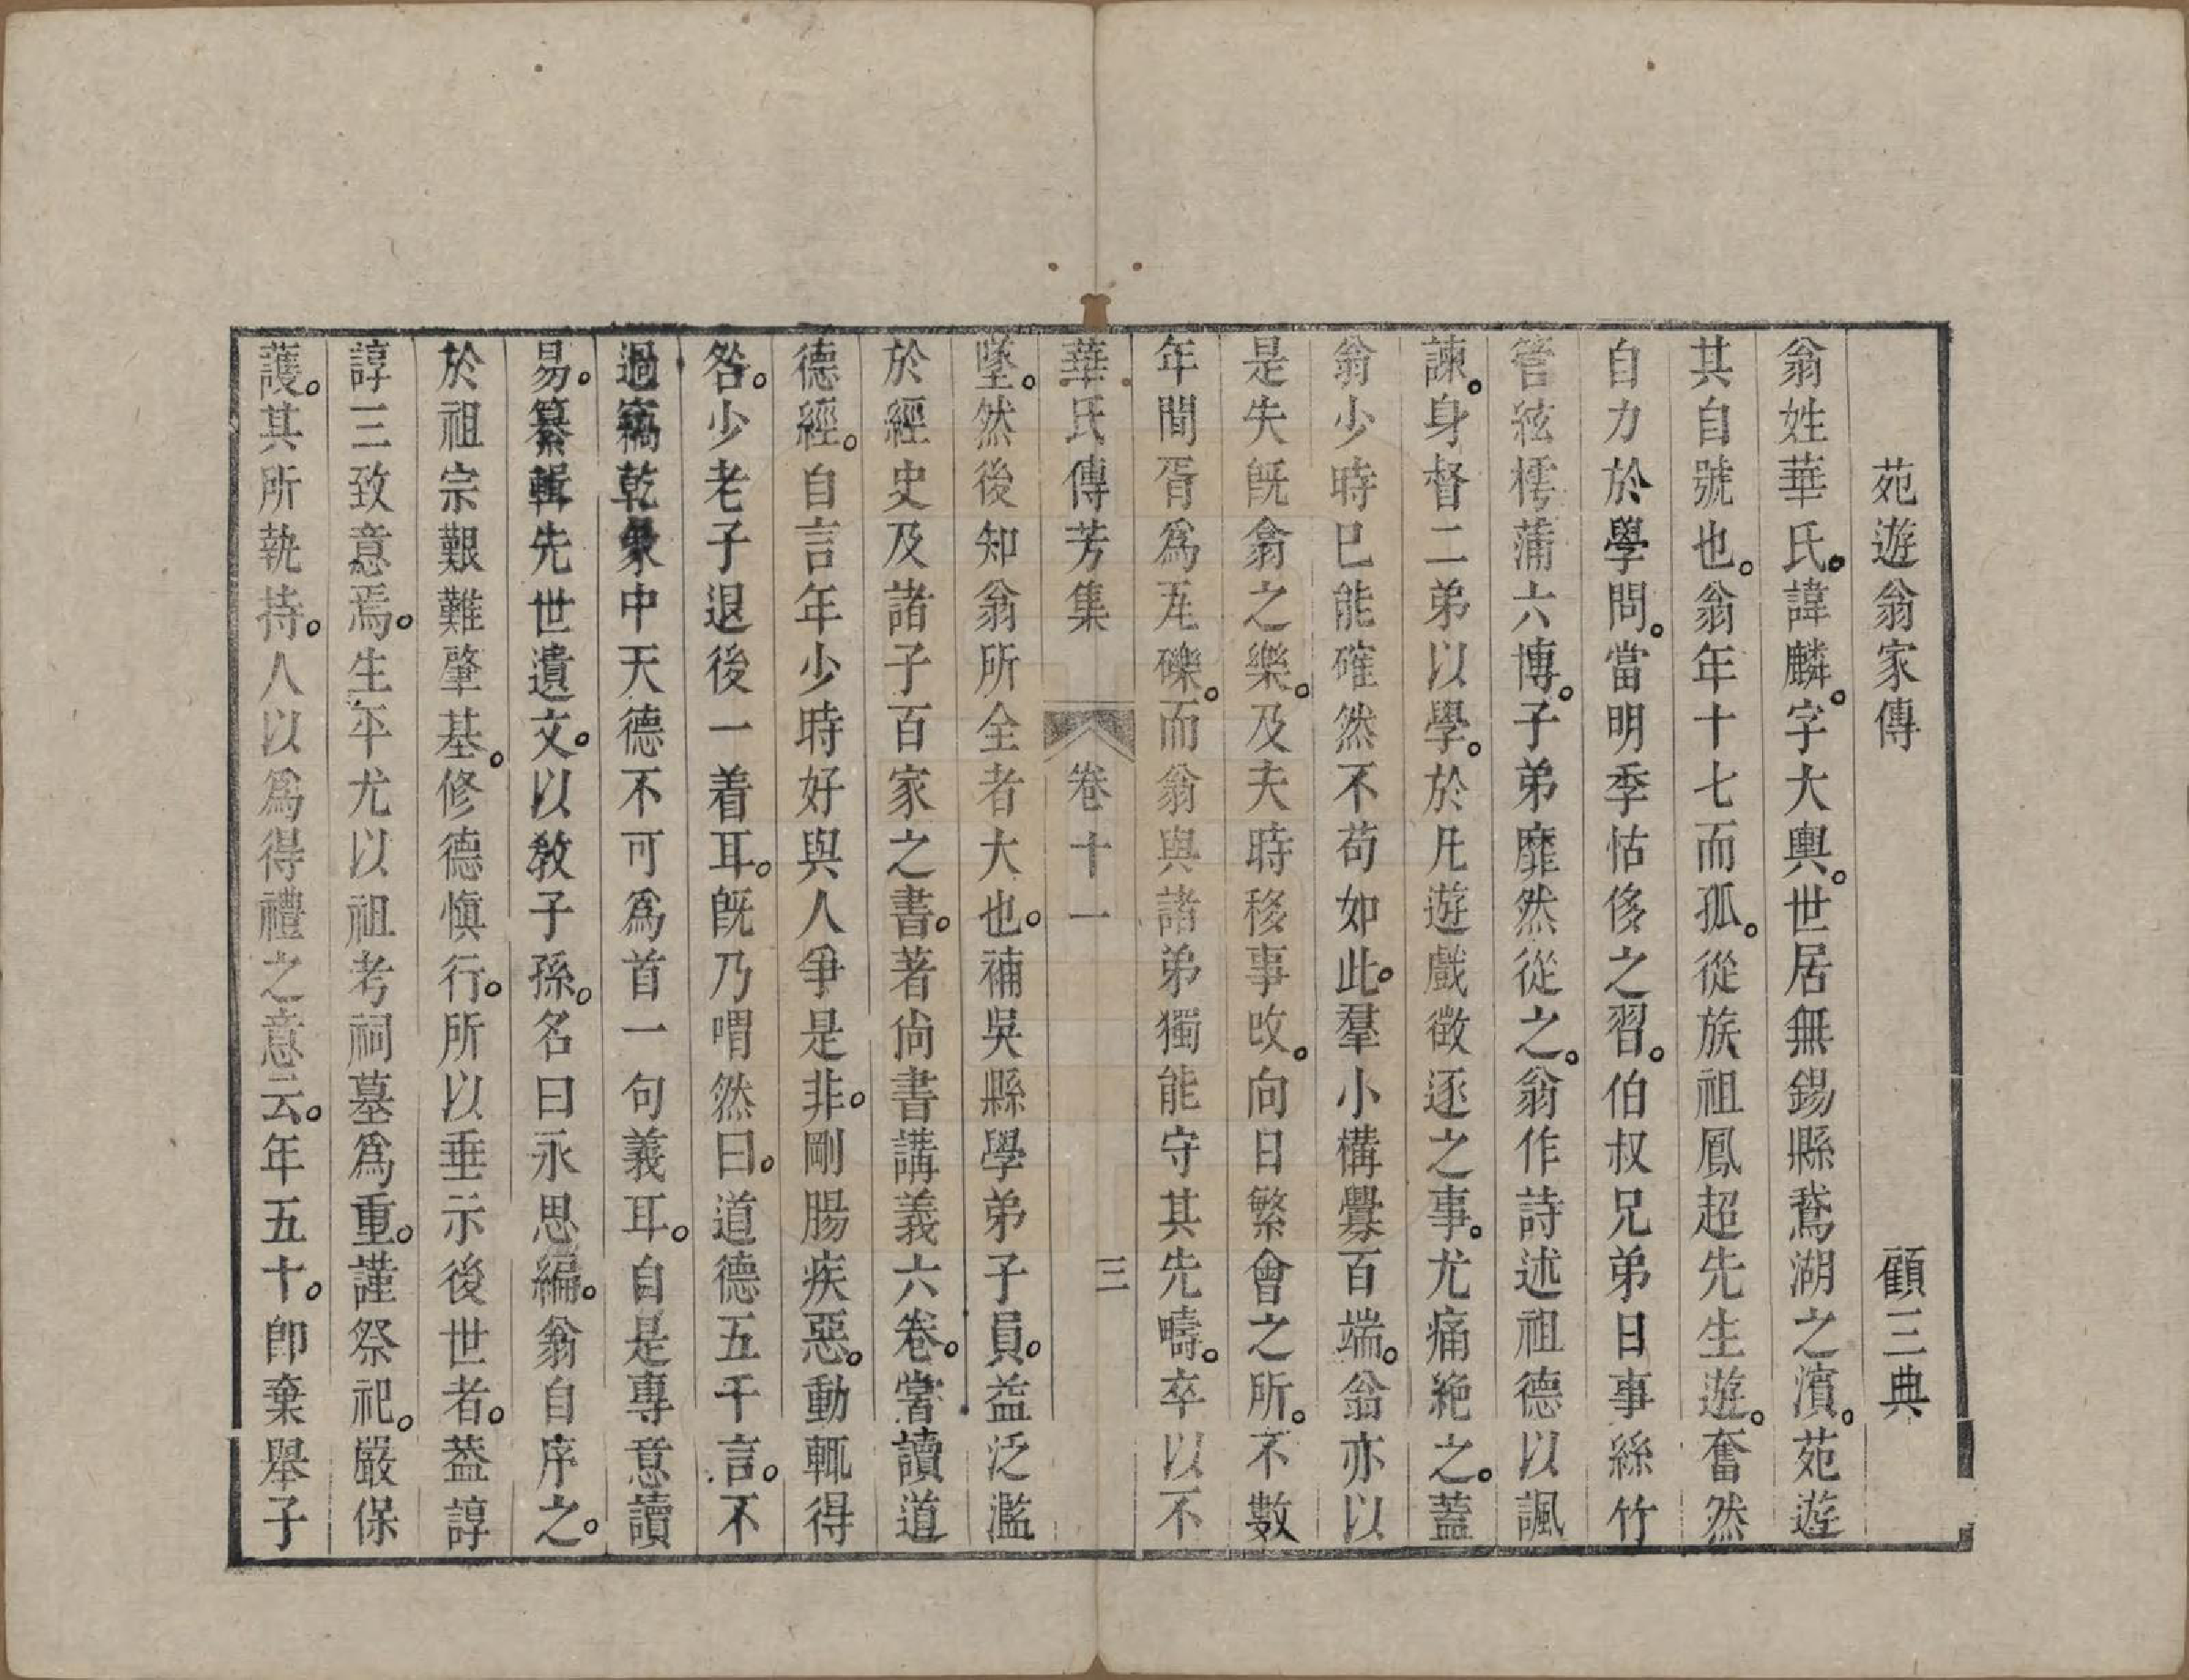 苑遊翁家傳　顧三典
翁姓華氏。諱麟。字大輿。世居無錫縣鵞湖之濱。苑遊
其自號也。翁年十七而孤。從族祖鳳超先生遊。奮然
自力於學問。當明季怙侈之習。伯叔兄弟日事絲竹
管絃樗蒲六博。子弟靡然從之。翁作詩述祖德以諷
諫。身督二弟以學。於凡遊戲徵逐之事。尤痛絶之。蓋
翁少時巳能確然不苟如此。羣小構釁百端。翁亦以
是失旣翕之樂。及夫時移事改。向日繁會之所。不數
年間胥爲瓦礫。而翁與諸弟獨能守其先疇。卒以不
華氏傳芳集　卷十一　三
墜。然後知翁所全者大也。補吳縣學弟子員。益泛濫
於經史及諸子百家之書。著尙書講義六卷。嘗讀道
德經。自言年少時好與人爭是非。剛腸疾惡。動輒得
咎。少老子退後一着耳。旣乃喟然曰。道德五千言。不
過竊乾象中天德不可爲首一句義耳。自是專意讀
易。纂輯先世遺文。以敎子孫。名曰永思編。翁自序之。
於祖宗艱難肇基。修德愼行。所以垂示後世者。葢諄
諄三致意焉。生平尤以祖考祠墓爲重。謹祭祀。嚴保
護。其所執持。人以爲得禮之意云。年五十。卽棄舉子